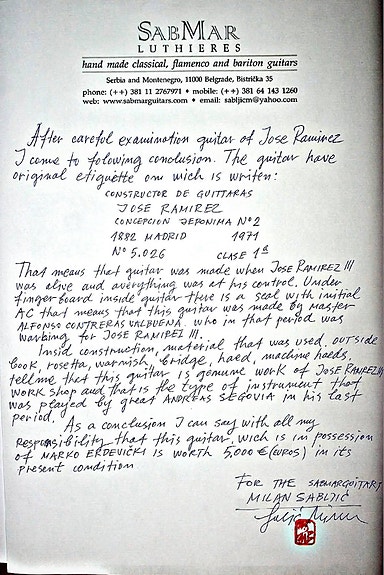 SABMAR
LUTHIERES
hand made classical, flamenco and bariton guitars
Serbia and Montenegro, 11000 Belgrade, Bistrička 35
phone: (++) 381 11 2767971 • mobile: (++) 381 64 143 1260
web: www.sabmarguitars.com • email: sabljicm@yahoo.com
After careful examination guitar of Jose Ramirez
I come to folowing conclusion. The guitar have
original etiquette on wich is writen:
CONSTRUCTOR DE GUITTARAS
JOSE RAMIREZ
CONCEPCION JERONIMA Nº2
1882 MADRID 1971
Nº 5.026 CLASE 1ª
That means that guitar was made when JOSE RAMIREZ III
was alive and everything was at his control. Under
fingerboard inside guitar there is a seal with initial
AC that means that this guitar was made by master
ALFONSO CONTRERAS VALBUENA. who in that period was
working for JOSE RAMIREZ III.
Insid construction, material that was used, outside
look, rosetta, warnish, bridge, haed, machine haeds,
tell me that this guitar is genuine work of JOSE RAMIREZ III
WORK SHOP and that is the type of instrument that
was played by great ANDREAS SEGOVIA in his last
period.
As a conclusion I can say with all my
responsibility that this guitar, wich is in possession
of MARKO ERDEVIČKI is worth 5,000 € (EUROS) in its
present condition
FOR THE SABMARGUITARS
MILAN SABLJIĆ